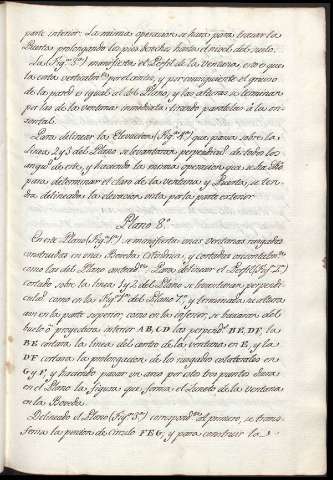 parte interior. La misma operacion se hara para trazar la
Puerta prolongando los pies derechos hasta el nivel del suelo.
La (Fig.ª 3.ª) manifiesta el Perfil de la ventana, esto es que
la corta verticalm.te por el centro, y por consiguiente el grueso
de la pared es igual al del Plano, y las alturas se terminan
por las de las ventanas inmediata tirando paralelas á la ori-
zontal.
Para delinear la Elevacion (Fig.ª 4.ª) que pasa sobre la
linea 2 y 3 del Plano se levantaran perpendicul.s de todos los
angul.s de este, y haciendo la misma operacion que se ha dho
para determinar el claro de la ventana y Puerta, se ten-
dra delineada la elevacion vista por la parte exterior.
Plano 8.º
En este Plano (Fig.ª 1.ª) se manifiesta unas ventanas rasgadas
construidas en una Boveda Cilindrica, y cortadas orizontalm.te
como las del Plano anteced.te Para delinear el Perfil (Fig.ª 2.ª)
cortado sobre la linea 1 y 2 del Plano se levantaran perpendi-
cular.s como en la Fig.ª 1.ª del Plano 7.º, y terminada su altura
asi en la parte superior, como en la inferior, se baxaran del
buelo ó proyectura interior AB, CD las perpend.s BE, DF, la
BE cortara la linea del centro de la ventana en E, y la
DF cortara la prolongacion de los rasgados colaterales en
G y F, y haciendo pasar un arco por estos tres puntos dara
en el Plano la figura que forma el Luneto de la ventana
en la Boveda.
Delineado el Plano (Fig.ª 3.ª) correspond.te al primero, se trans-
forma la porcion de circulo FEG, y para construir la